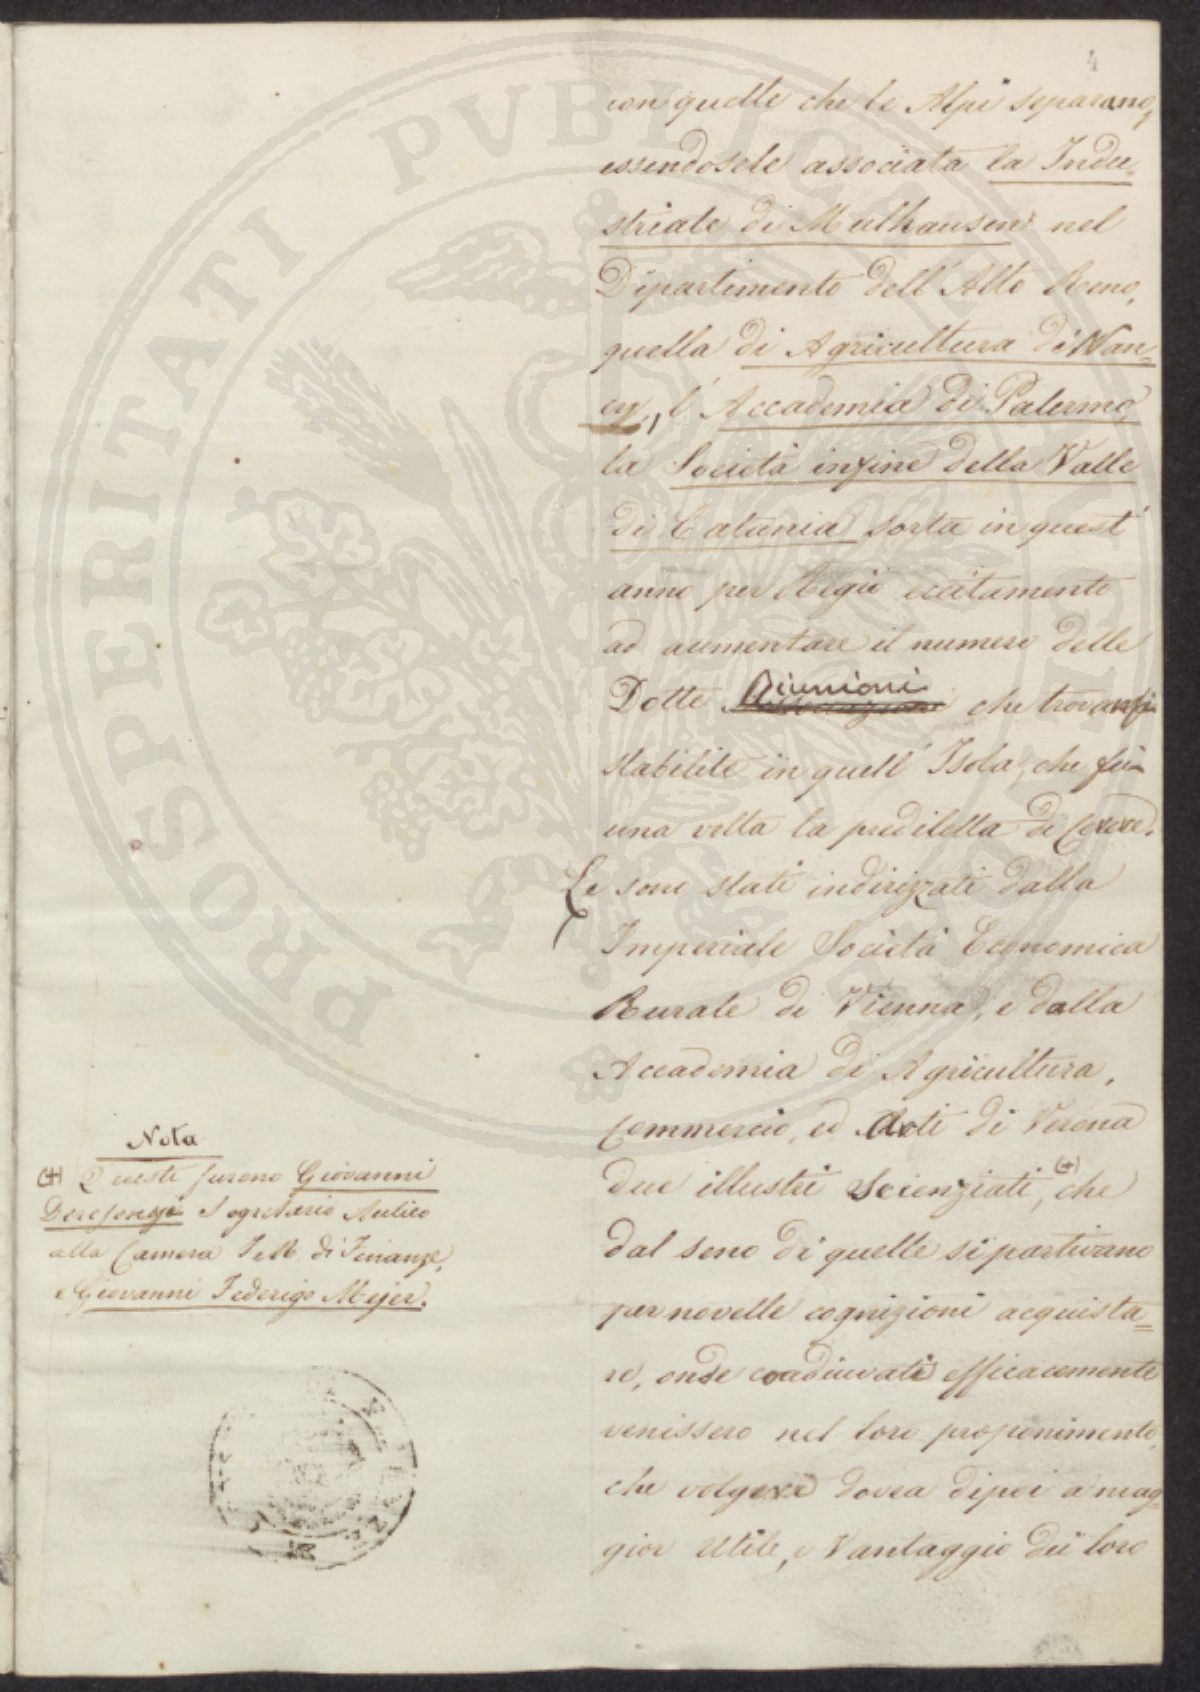 4
con quelle che le Alpi separano,
essendosele associata la Indu-
striale di Mulhausen nel
Dipartimento dell'Alto Reno,
quella di Agricultura di Nan-
cy, l'Accademia di Palermo,
la Società infine della Valle
di Catania sorta in quest'
anno per Regio eccitamento
ad aumentare il numero delle
Dotte Riunioni che trovansi
stabilite in quell'Isola, che fu
una volta la prediletta di Cerere.
Le sono stati indirizzati dalla
Imperiale Società Economica
Rurale di Vienna, e dalla
Accademia di Agricultura,
Commercio, ed Arti di Verona
due illustri Scienziati, (+) che
dal seno di quelle si partivano
per novelle cognizioni acquista=
re, onde coadiuvati efficacemente
venissero nel loro proponimento,
che volgere dovea dipoi a mag-
gior utile, e vantaggio dei loro
Nota
(+) Questi furono Giovanni
Segretario Aulico
alla Camera I. e R. di Finanze,
e Giovanni Federigo Mejer.
PROSPERITATI PUBLICAE